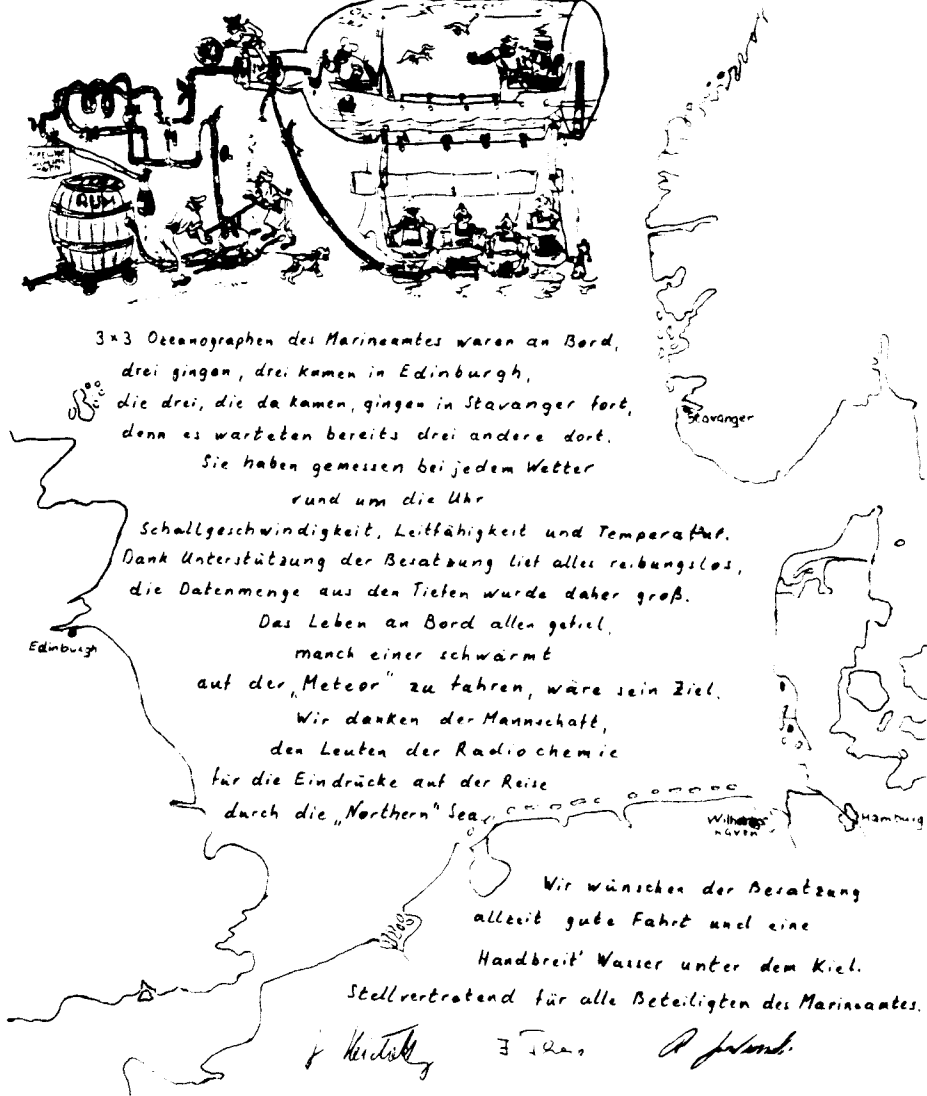 RUM
3x3 Ozeanographen des Marineamtes waren an Bord,
drei gingen, drei kamen in Edinburgh,
die drei, die da kamen, gingen in Stavanger fort,
denn es warteten bereits drei andere dort.
Stavanger
Sie haben gemessen bei jedem Wetter
rund um die Uhr
Schallgeschwindigkeit, Leitfähigkeit und Temperatur.
Dank Unterstützung der Besatzung lief alles reibungslos,
die Datenmenge aus den Tiefen wurde daher groß.
Das Leben an Bord allen gefiel,
Edinburgh
manch einer schwärmt
auf der „Meteor" zu fahren, wäre sein Ziel.
Wir danken der Mannschaft,
den Leuten der Radiochemie
für die Eindrücke auf der Reise
durch die „Northern" Sea.
Hamburg
Wir wünschen der Besatzung
allzeit gute Fahrt und eine
Handbreit' Wasser unter dem Kiel.
Stellvertretend für alle Beteiligten des Marineamtes.